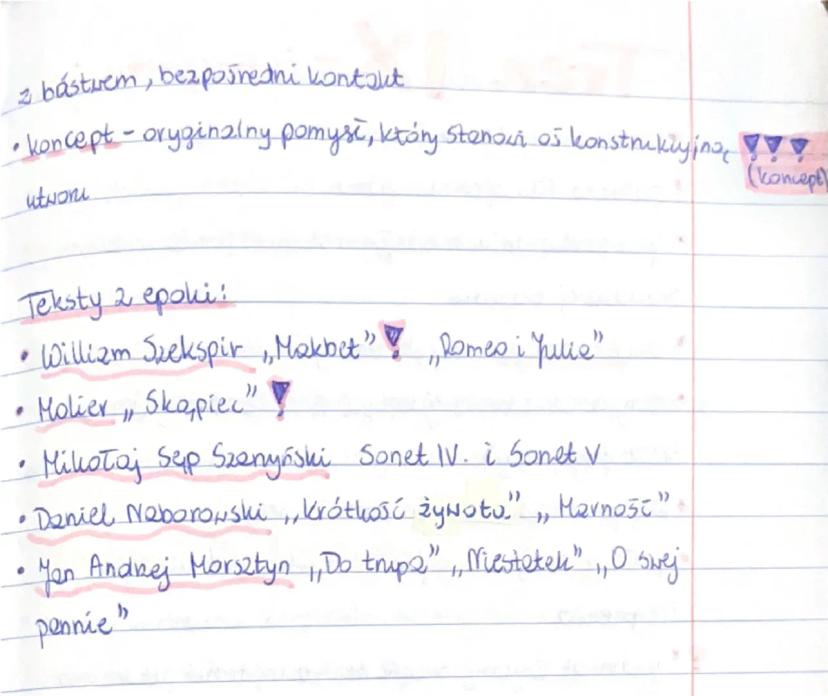 z bóstwem, bezpośredni kontakt
• koncept - oryginalny pomysł, który stanowi oś konstrukcyjną
(koncept)
utworu
Teksty z epoki:
• William Szekspir „Makbet" ! „Romeo i Julia"
• Molier „Skąpiec" !
• Mikołaj Sęp Szarzyński Sonet IV. i Sonet V
• Daniel Naborowski „Krótkość żywota" „Marność"
• Jan Andrzej Morsztyn „Do trupa" „Niestatek" „O swej
pannie"